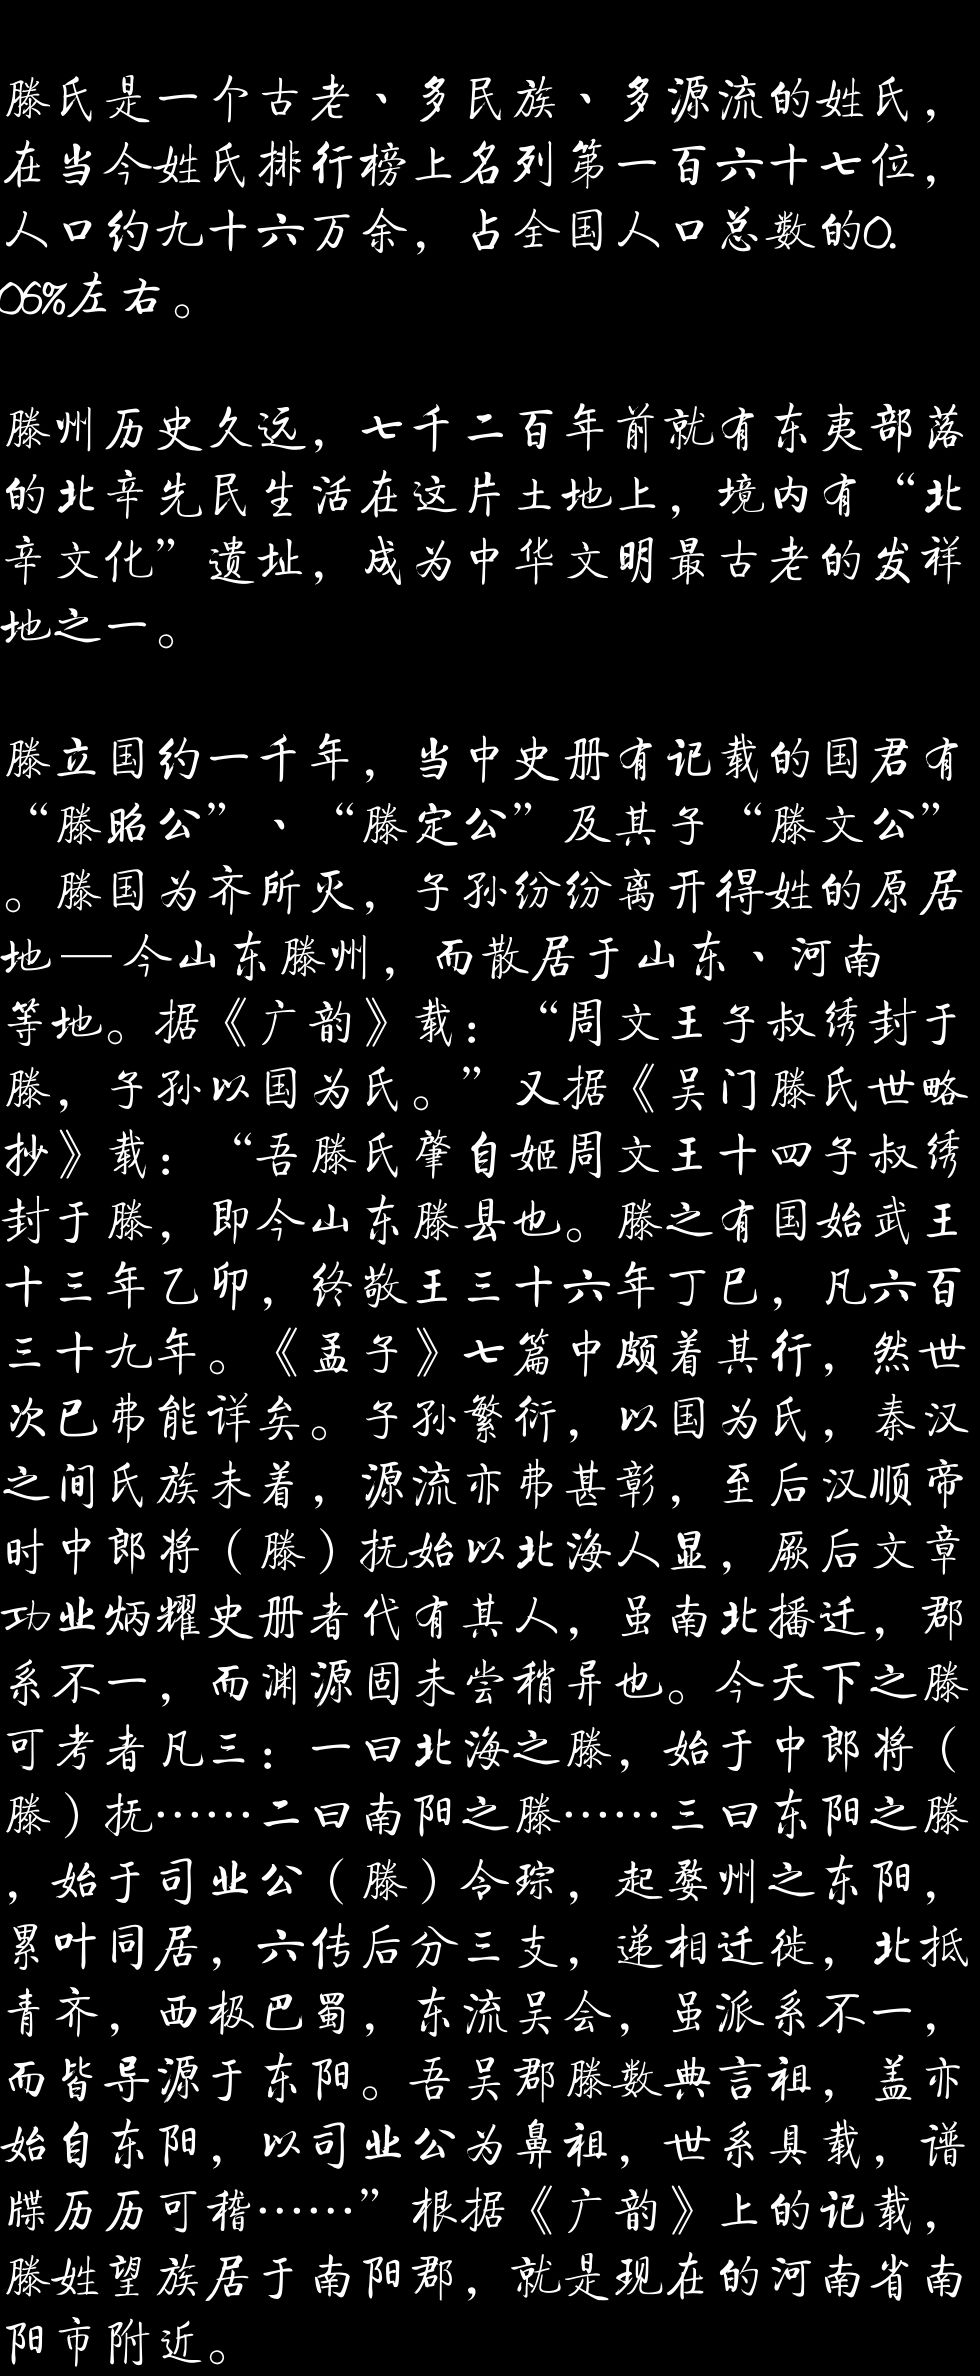 滕氏是一个古老、多民族、多源流的姓氏，
在当今姓氏排行榜上名列第一百六十七位，
人口约九十六万余，占全国人口总数的0.
06%左右。
滕州历史久远，七千二百年前就有东夷部落
的北辛先民生活在这片土地上，境内有“北
辛文化”遗址，成为中华文明最古老的发祥
地之一。
滕立国约一千年，当中史册有记载的国君有
“滕昭公”、“滕定公”及其子“滕文公”
。滕国为齐所灭，子孙纷纷离开得姓的原居
地—今山东滕州，而散居于山东、河南
等地。据《广韵》载：“周文王子叔绣封于
滕，子孙以国为氏。”又据《吴门滕氏世略
抄》载：“吾滕氏肇自姬周文王十四子叔绣
封于滕，即今山东滕县也。滕之有国始武王
十三年乙卯，终敬王三十六年丁巳，凡六百
三十九年。《孟子》七篇中颇着其行，然世
次已弗能详矣。子孙繁衍，以国为氏，秦汉
之间氏族未着，源流亦弗甚彰，至后汉顺帝
时中郎将（滕）抚始以北海人显，厥后文章
功业炳耀史册者代有其人，虽南北播迁，郡
系不一，而渊源固未尝稍异也。今天下之滕
可考者凡三：一曰北海之滕，始于中郎将（
滕）抚……二曰南阳之滕……三曰东阳之滕
，始于司业公（滕）令琮，起婺州之东阳，
累叶同居，六传后分三支，递相迁徙，北抵
青齐，西极巴蜀，东流吴会，虽派系不一，
而皆导源于东阳。吾吴郡滕数典言祖，盖亦
始自东阳，以司业公为鼻祖，世系具载，谱
牒历历可稽……”根据《广韵》上的记载，
滕姓望族居于南阳郡，就是现在的河南省南
阳市附近。